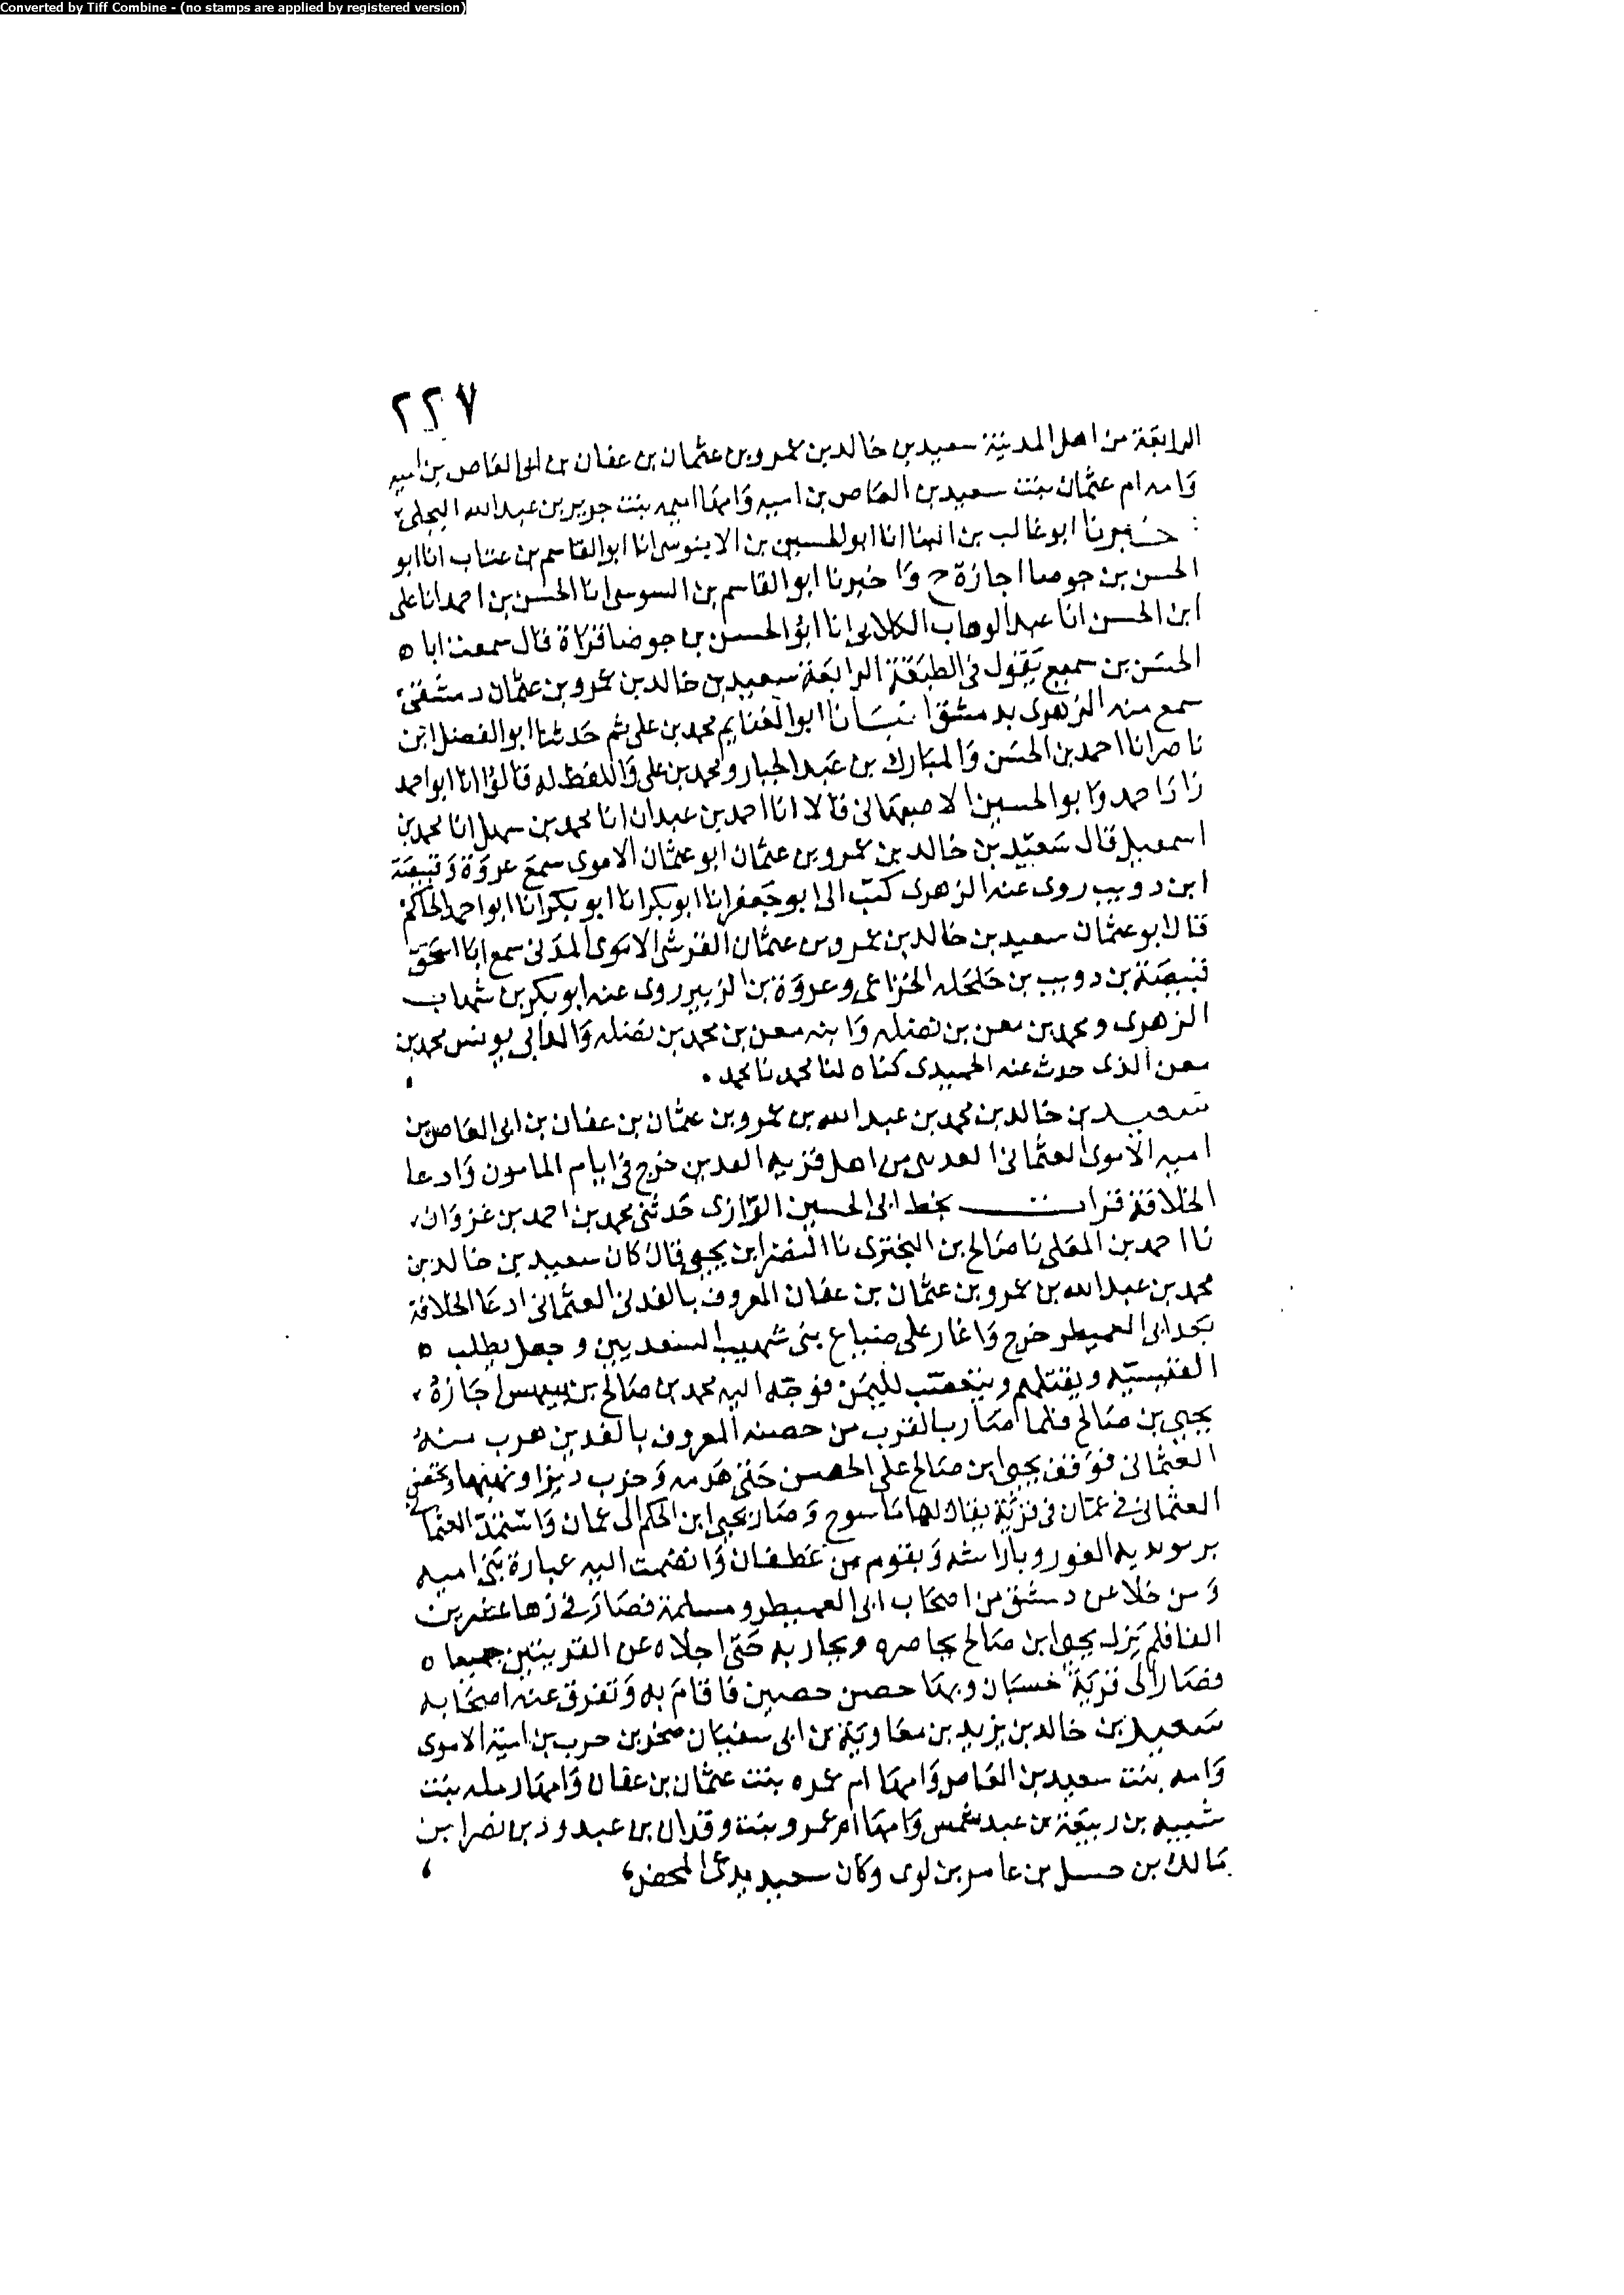 Converted by Tiff Combine - (no stamps are applied by registered version)
٢٢٧
الرابعة من اهل المدينة سعيد بن خالد بن عمرو بن عثمان بن عفان بن ابى العاص بن اميه
وامه ام عثمان بنت سعيد بن العاص بن اميه وامها اميمه بنت جرير بن عبد الله البجلى
خبرنا ابو غالب بن البنا انا ابو الحسين بن الابنوسى انا ابو القاسم بن عتاب انا ابو
الحسن بن جوصا اجازة ح واخبرنا ابو القاسم بن السوسى انا الحسن بن احمد انا على
ابن الحسن انا عبد الوهاب الكلابى انا ابو الحسن بن جوصا قراة قال سمعت ابا ه
الحسن بن سميع يقول فى الطبقة الرابعة سعيد بن خالد بن عمرو بن عثمان دمشقى
سمع منه الزهرى بدمشق انبانا ابو الغنايم محمد بن على ثم حدثنا ابو الفضل ابن
ناصر انا احمد بن الحسن والمبارك بن عبد الجبار ومحمد بن على واللفظ له قالوا انا ابو احمد
زاد احمد وابو الحسين الاصبهانى قالا انا احمد بن عبدان انا محمد بن سهل انا محمد بن
اسمعيل قال سعيد بن خالد بن عمرو بن عثمان ابو عثمان الاموى سمع عروة وقبيصة
ابن دويب روى عنه الزهرى كتب الى ابو جعفر انا ابو بكر انا ابو بكر انا ابو احمد الحاكم
قال ابو عثمان سعيد بن خالد بن عمرو بن عثمان القرشى الاموى المدنى سمع ابا اسحق
قبيصة بن دويب بن حلحله الخزاعى وعروة بن الزبير روى عنه ابو بكر بن شهاب
الزهرى ومحمد بن معن بن نضله وابنه معن بن محمد بن نضله والد ابى يونس محمد بن
معن الذى حدث عنه الحميدى كناه لنا محمد نا محمد .
سعيد بن خالد بن محمد بن عبد الله بن عمرو بن عثمان بن عفان بن ابى العاص بن
اميه الاموى العثمانى الفدينى من اهل قريه الفدين خرج فى ايام المامون وادعا
الخلافة قرات بخط ابى الحسين الرازى حدثنى محمد بن احمد بن غزوان
نا احمد بن المعلى نا صالح بن البخترى نا النضر ابن يحيى قال كان سعيد بن خالد بن
محمد بن عبد الله بن عمرو بن عثمان بن عفان المعروف بالفدنى العثمانى ادعا الخلافة
بعد ابى العميطر خرج واغار على ضياع بنى شهيب السعديين وجعل يطلب ه
القيسيه ويقتلهم ويتعصب لليمن فوجه اليه محمد بن صالح بن بيهس اخاه
يحيى بن صالح فلما صار بالقرب من حصنه المعروف بالفدين هرب منه
العثمانى فوقف يحيى ابن صالح على الحصن حتى هدمه وخرب ونهبها وتحصن
العثمانى فى عمان فى قرية يقال لها ماسوح وصار يحيى ابن الحكم الى عمان واستمد العثمانى
الغور وباراشه وبقوم من غطفان وانضمت اليه عبارة بنى اميه
ومن جلا عن دمشق من اصحاب ابى العميطر ومسلمة فصار فى زها عشرين
الفا فلم يزل يحيى ابن صالح يحاصره ويحاربه حتى اجلاه عن القريتين جميعا ه
فصار الى قرية حسبان وبها حصن حصين فاقام به وتفرق عنه اصحابه
سعيد بن خالد بن يزيد بن معاوية بن ابى سفيان صخر بن حرب بن امية الاموى
وامه بنت سعيد بن العاص وامها ام عمره بنت عثمان بن عفان وامها رمله بنت
شيبه بن ربيعة بن عبد شمس وامها ام عمرو بنت وقدان بن عبد ود بن نصر ابن
مالك بن حسل بن عامر بن لوى وكان سعيد يدعى المحض